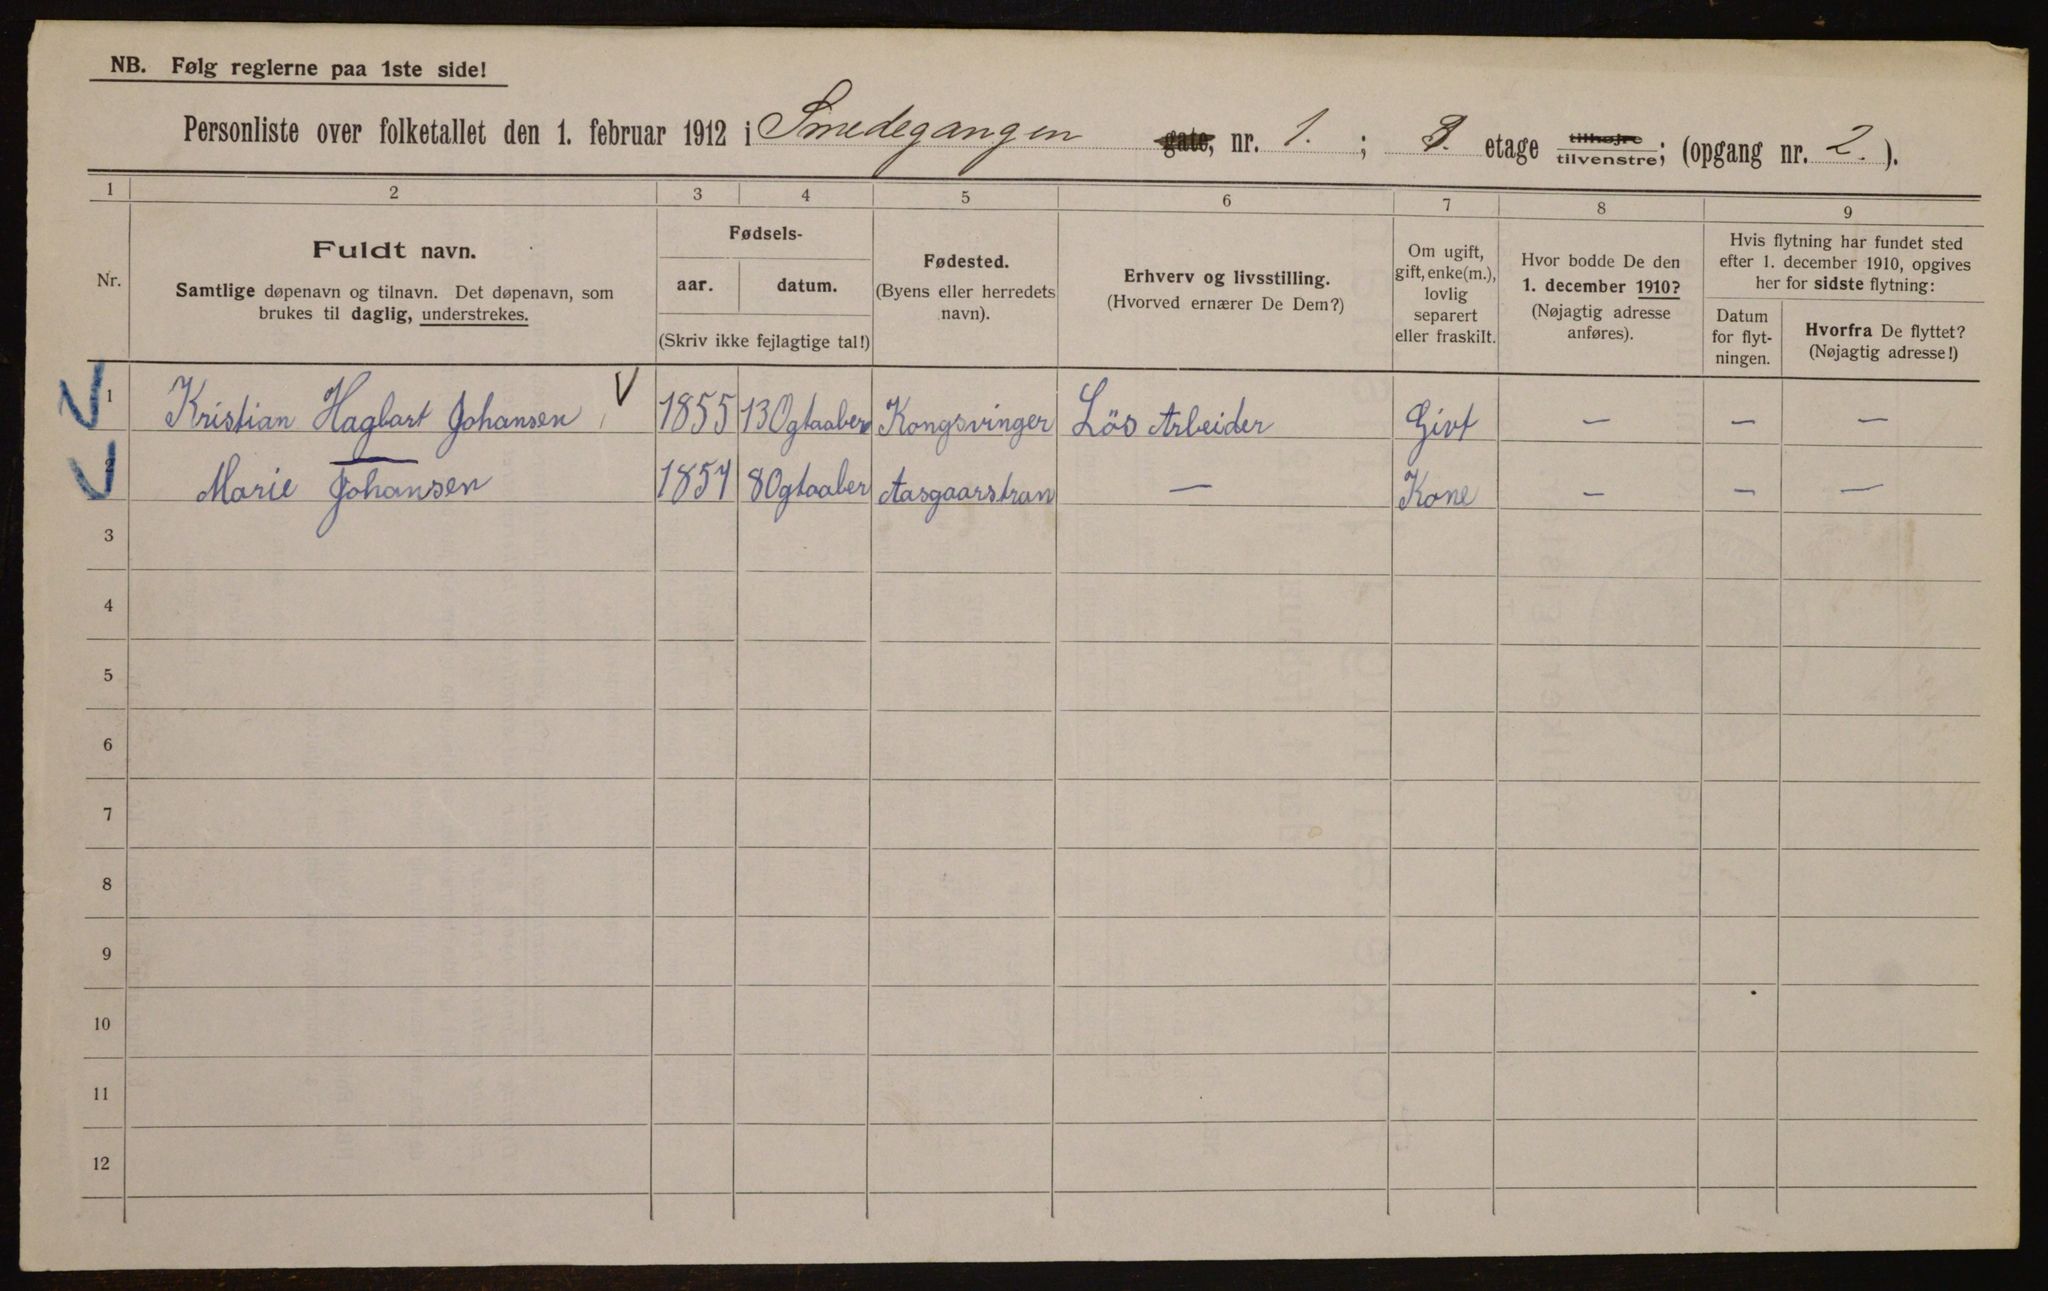 NB. Følg reglerne paa 1ste side!
Personliste over folketallet den 1. februar 1912 i Smedegangen gate, nr. 1. ; 3. etage tilhøjre tilvenstre; (opgang nr. 2. ).
1 2 3 4 5 6 7 8 9
Nr.
Fuldt navn.
Samtlige døpenavn og tilnavn. Det døpenavn, som
brukes til daglig, understrekes.
Fødsels-
aar. datum.
(Skriv ikke fejlagtige tal!)
Fødested.
(Byens eller herredets
navn).
Erhverv og livsstilling.
(Hvorved ernærer De Dem?)
Om ugift,
gift, enke(m.),
lovlig
separert
eller fraskilt.
Hvor bodde De den
1. december 1910?
(Nøjagtig adresse
anføres).
Hvis flytning har fundet sted
efter 1. december 1910, opgives
her for sidste flytning:
Datum
for flyt-
ningen.
Hvorfra De flyttet?
(Nøjagtig adresse!)
1 Kristian Hagbart Johansen V 1855 13 Ogtaaber Kongsvinger Lös Arbeider Givt — — —
2 Marie Johansen 1857 8 Ogtaaber Aasgaarstran — Kone — — —
3
4
5
6
7
8
9
10
11
12